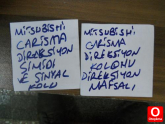 MİTSUBİSHİ
CARİSMA
DİREKSİYON
ŞİMİDİ
VE SİNYAL
KOLU
MİTSUBİSHİ
CARİSMA
DİREKSİYON
KOLONU
DİREKSİYON
MAFSALI